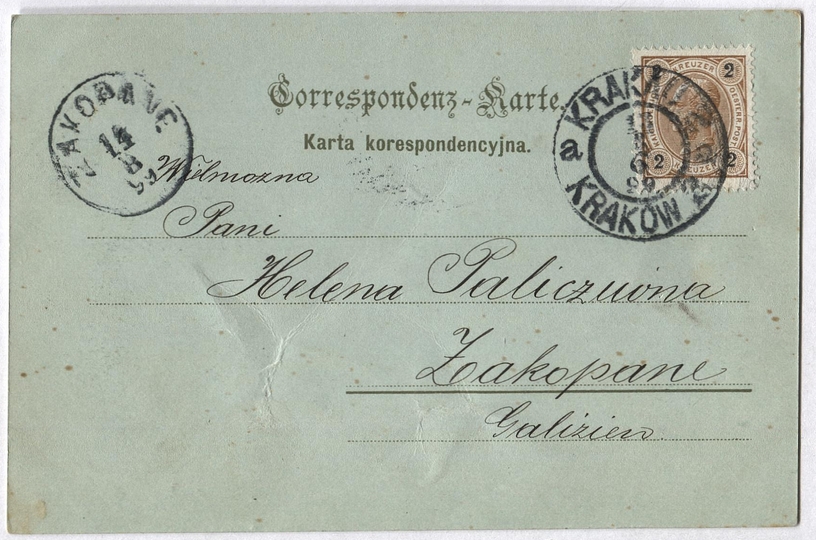 Correspondenz-Karte.
Karta korespondencyjna.
2 KREUZER 2
OESTERR. POST
2 KREUZER 2
KRAKAU
a
KRAKÓW
ZAKOPANE
14
8
99
Wielmożna
Pani
Helena Paliczuwna
Zakopane
Galizien.